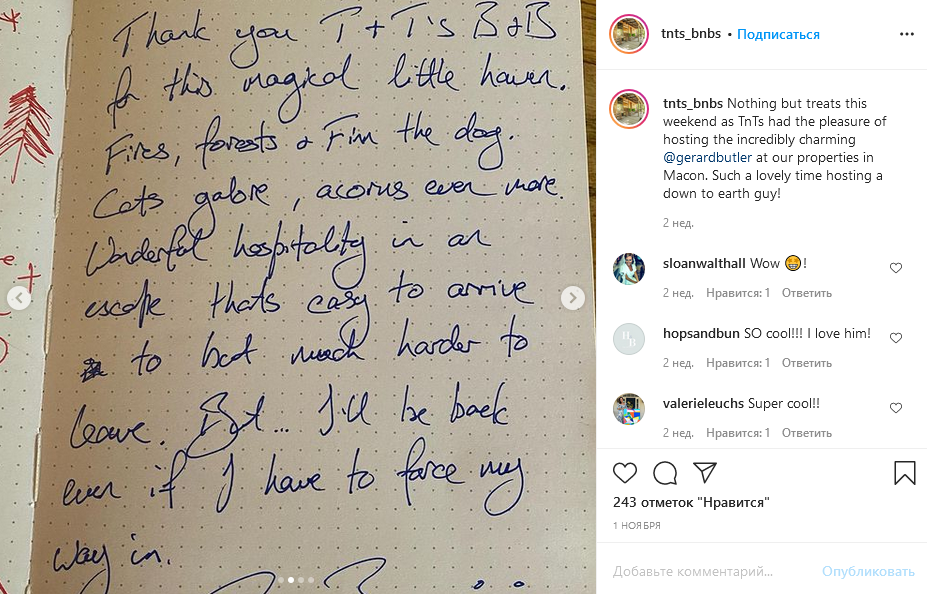 Thank you T + T's B & B
for this magical little haven.
Fires, forests & Finn the dog.
Cats galore, acorns even more.
Wonderful hospitality in an
escape thats easy to arrive
to but much harder to
leave. But... I'll be back
even if I have to force my
way in.
tnts_bnbs • Подписаться
tnts_bnbs Nothing but treats this
weekend as TnTs had the pleasure of
hosting the incredibly charming
@gerardbutler at our properties in
Macon. Such a lovely time hosting a
down to earth guy!
2 нед.
sloanwalthall Wow 😁!
2 нед. Нравится: 1 Ответить
hopsandbun SO cool!!! I love him!
2 нед. Нравится: 1 Ответить
valerieleuchs Super cool!!
2 нед. Нравится: 1 Ответить
243 отметок "Нравится"
1 НОЯБРЯ
Добавьте комментарий... Опубликовать